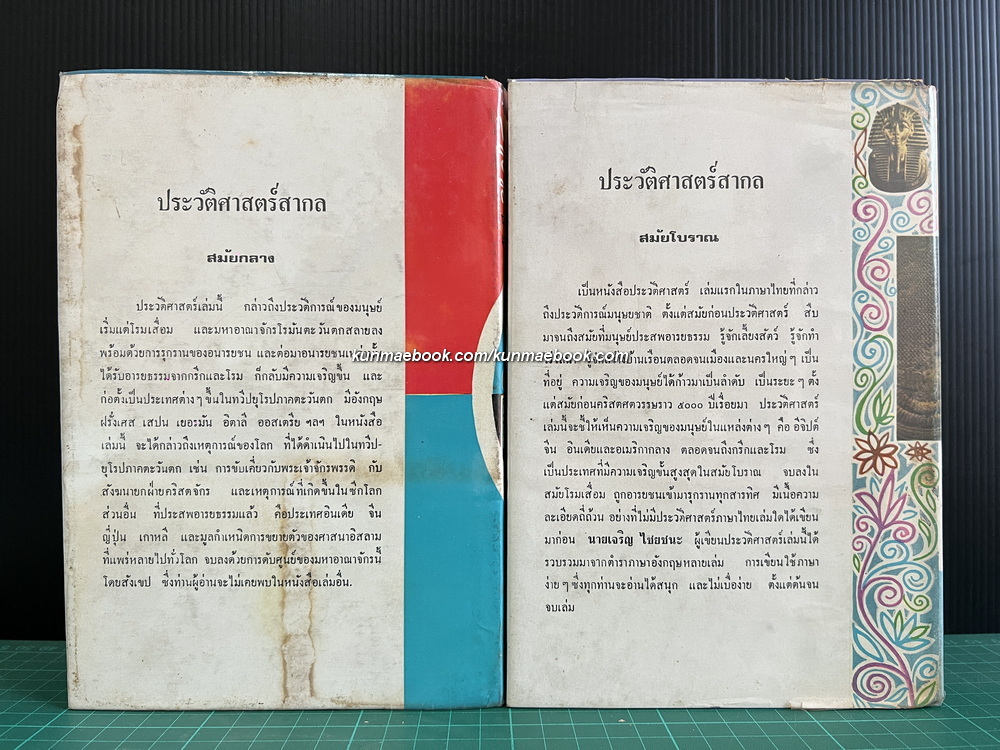 ประวัติศาสตร์สากล
สมัยกลาง
ประวัติศาสตร์เล่มนี้ กล่าวถึงประวัติการณ์ของมนุษย์
เริ่มแต่โรมเสื่อม และมหาอาณาจักรโรมันตะวันตกสลายลง
พร้อมด้วยการรุกรานของอนารยชน และต่อมาอนารยชนเหล่านั้น
ได้รับอารยธรรมจากกรีกและโรม ก็กลับมีความเจริญขึ้น และ
ก่อตั้งเป็นประเทศต่างๆ ขึ้นในทวีปยุโรปภาคตะวันตก มีอังกฤษ
ฝรั่งเศส เสปน เยอรมัน อิตาลี ออสเตรีย ฯลฯ ในหนังสือ
เล่มนี้ จะได้กล่าวถึงเหตุการณ์ของโลก ที่ได้ดำเนินไปในทวีป-
ยุโรปภาคตะวันตก เช่น การขับเคี่ยวกับพระเจ้าจักรพรรดิ กับ
สังฆนายกฝ่ายคริสตจักร และเหตุการณ์ที่เกิดขึ้นในซีกโลก
ส่วนอื่น ที่ประสพอารยธรรมแล้ว คือประเทศอินเดีย จีน
ญี่ปุ่น เกาหลี และมูลกำเหนิดการขยายตัวของศาสนาอิสลาม
ที่แพร่หลายไปทั่วโลก จบลงด้วยการดับศูนย์ของมหาอาณาจักรนี้
โดยสังเขป ซึ่งท่านผู้อ่านจะไม่เคยพบในหนังสือเล่มอื่น.
ประวัติศาสตร์สากล
สมัยโบราณ
เป็นหนังสือประวัติศาสตร์ เล่มแรกในภาษาไทยที่กล่าว
ถึงประวัติการณ์มนุษยชาติ ตั้งแต่สมัยก่อนประวัติศาสตร์ สืบ
มาจนถึงสมัยที่มนุษย์ประสพอารยธรรม รู้จักเลี้ยงสัตว์ รู้จักทำ
บ้านเรือนตลอดจนเมืองและนครใหญ่ๆ เป็น
ที่อยู่ ความเจริญของมนุษย์ได้ก้าวมาเป็นลำดับ เป็นระยะๆ ตั้ง
แต่สมัยก่อนคริสตศตวรรษราว ๕๐๐๐ ปีเรื่อยมา ประวัติศาสตร์
เล่มนี้จะชี้ให้เห็นความเจริญของมนุษย์ในแหล่งต่างๆ คือ อียิปต์
จีน อินเดียและอเมริกากลาง ตลอดจนถึงกรีกและโรม ซึ่ง
เป็นประเทศที่มีความเจริญขั้นสูงสุดในสมัยโบราณ จบลงใน
สมัยโรมเสื่อม ถูกอารยชนเข้ามารุกรานทุกสารทิศ มีเนื้อความ
ละเอียดถี่ถ้วน อย่างที่ไม่มีประวัติศาสตร์ภาษาไทยเล่มใดได้เขียน
มาก่อน นายเจริญ ไชยชนะ ผู้เขียนประวัติศาสตร์เล่มนี้ได้
รวบรวมมาจากตำราภาษาอังกฤษหลายเล่ม การเขียนใช้ภาษา
ง่ายๆ ซึ่งทุกท่านจะอ่านได้สนุก และไม่เบื่อง่าย ตั้งแต่ต้นจน
จบเล่ม
kunmaebook.com/kunmaebook.com